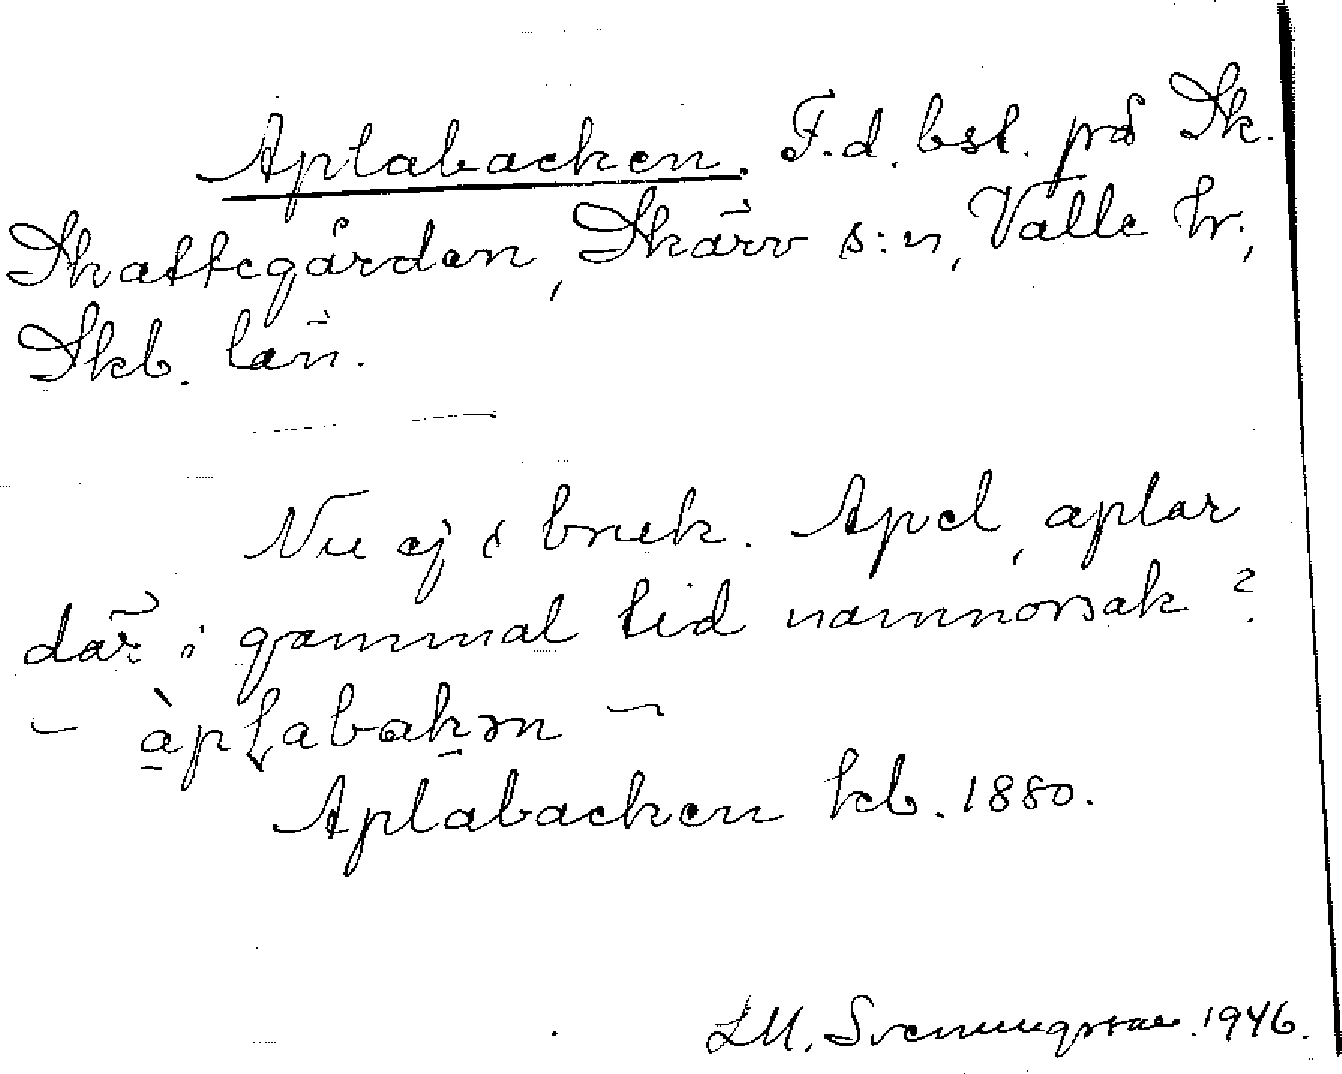 Aplabacken. F.d. bst. på Sk.
Skattegården, Skärv s:n, Valle hr,
Skb. län.
Nu ej i bruk. Apel, aplar
där i gammal tid namnorsak?
- àpɫabakən -
Aplabacken kb. 1880.
LM. Svenungsson. 1946.